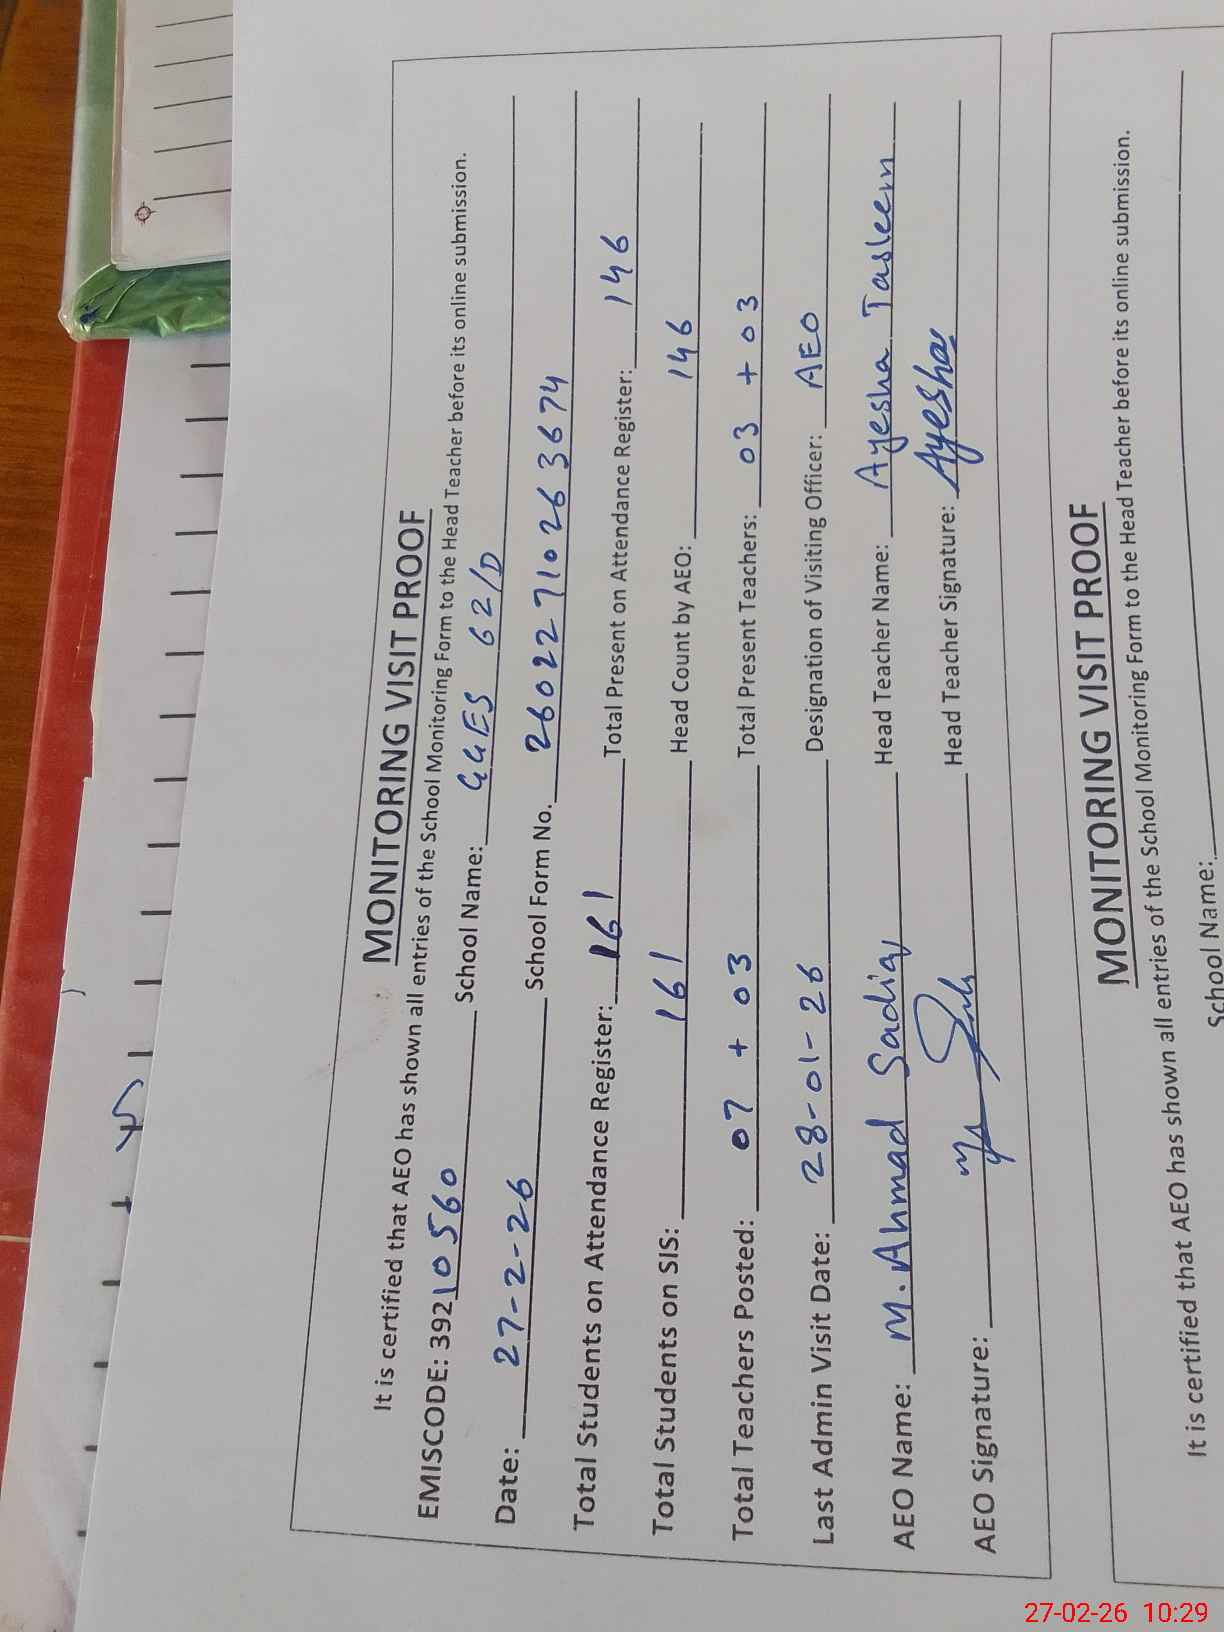 MONITORING VISIT PROOF
It is certified that AEO has shown all entries of the School Monitoring Form to the Head Teacher before its online submission.
EMISCODE: 39210560 School Name: GGES 62/D
Date: 27-2-26 School Form No. 26022710263674
Total Students on Attendance Register: 161 Total Present on Attendance Register: 146
Total Students on SIS: 161 Head Count by AEO: 146
Total Teachers Posted: 07 + 03 Total Present Teachers: 03 + 03
Last Admin Visit Date: 28-01-26 Designation of Visiting Officer: AEO
AEO Name: M. Ahmad Sadiq Head Teacher Name: Ayesha Tasleem
AEO Signature: Head Teacher Signature: Ayesha
MONITORING VISIT PROOF
It is certified that AEO has shown all entries of the School Monitoring Form to the Head Teacher before its online submission.
School Name:
27-02-26 10:29